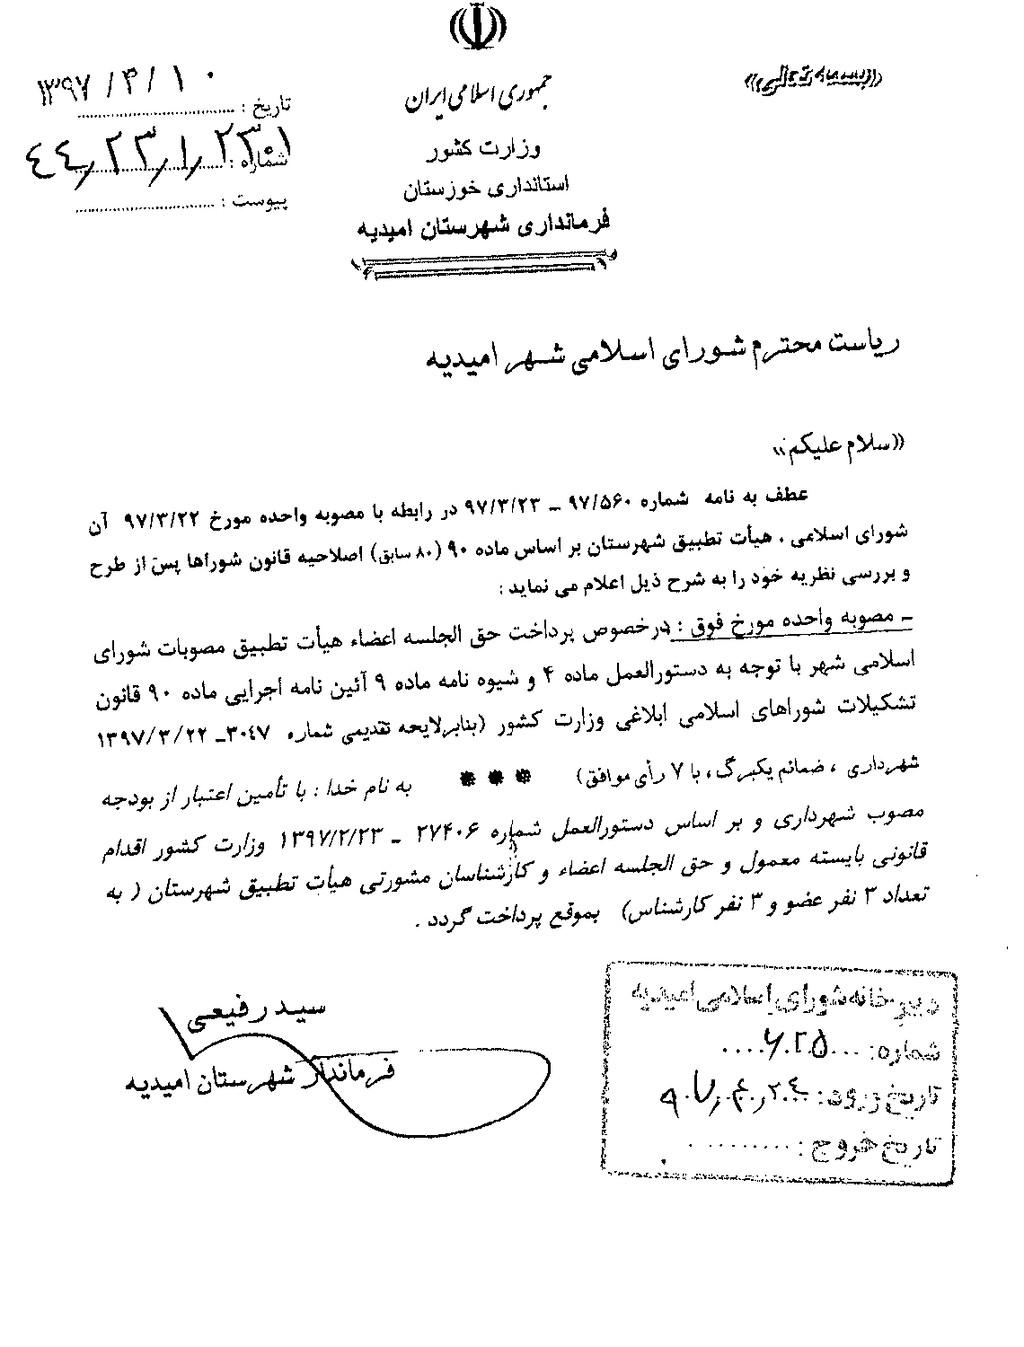 «بسمه تعالی»
جمهوری اسلامی ایران
وزارت کشور
استانداری خوزستان
فرمانداری شهرستان امیدیه
تاریخ : ۱۳۹۷/۴/۱۰
شماره :
پیوست :
ریاست محترم شورای اسلامی شهر امیدیه
«سلام علیکم»
عطف به نامه شماره ۹۷/۵۶۰ ــ ۹۷/۳/۲۳ در رابطه با مصوبه واحده مورخ ۹۷/۳/۲۲ آن
شورای اسلامی . هیأت تطبیق شهرستان بر اساس ماده ۹۰ (۸۰ سابق) اصلاحیه قانون شوراها پس از طرح
و بررسی نظریه خود را به شرح ذیل اعلام می نماید :
ــ مصوبه واحده مورخ فوق : درخصوص پرداخت حق الجلسه اعضاء هیأت تطبیق مصوبات شورای
اسلامی شهر با توجه به دستورالعمل ماده ۴ و شیوه نامه ماده ۹ آئین نامه اجرایی ماده ۹۰ قانون
تشکیلات شوراهای اسلامی ابلاغی وزارت کشور (بنابرلایحه تقدیمی شماره ۳۰۴۷ــ ۱۳۹۷/۳/۲۲
شهرداری ، ضمائم یکبرگ ، با ۷ رأی موافق) *** به نام خدا : با تأمین اعتبار از بودجه
مصوب شهرداری و بر اساس دستورالعمل شماره ۲۷۴۰۶ ــ ۱۳۹۷/۲/۲۳ وزارت کشور اقدام
قانونی بایسته معمول و حق الجلسه اعضاء و کارشناسان مشورتی هیأت تطبیق شهرستان ( به
تعداد ۳ نفر عضو و ۳ نفر کارشناس) بموقع پرداخت گردد .
سید رفیعی
فرماندار شهرستان امیدیه
دبیرخانه شورای اسلامی امیدیه
شماره:
تاریخ ورود:
تاریخ خروج :